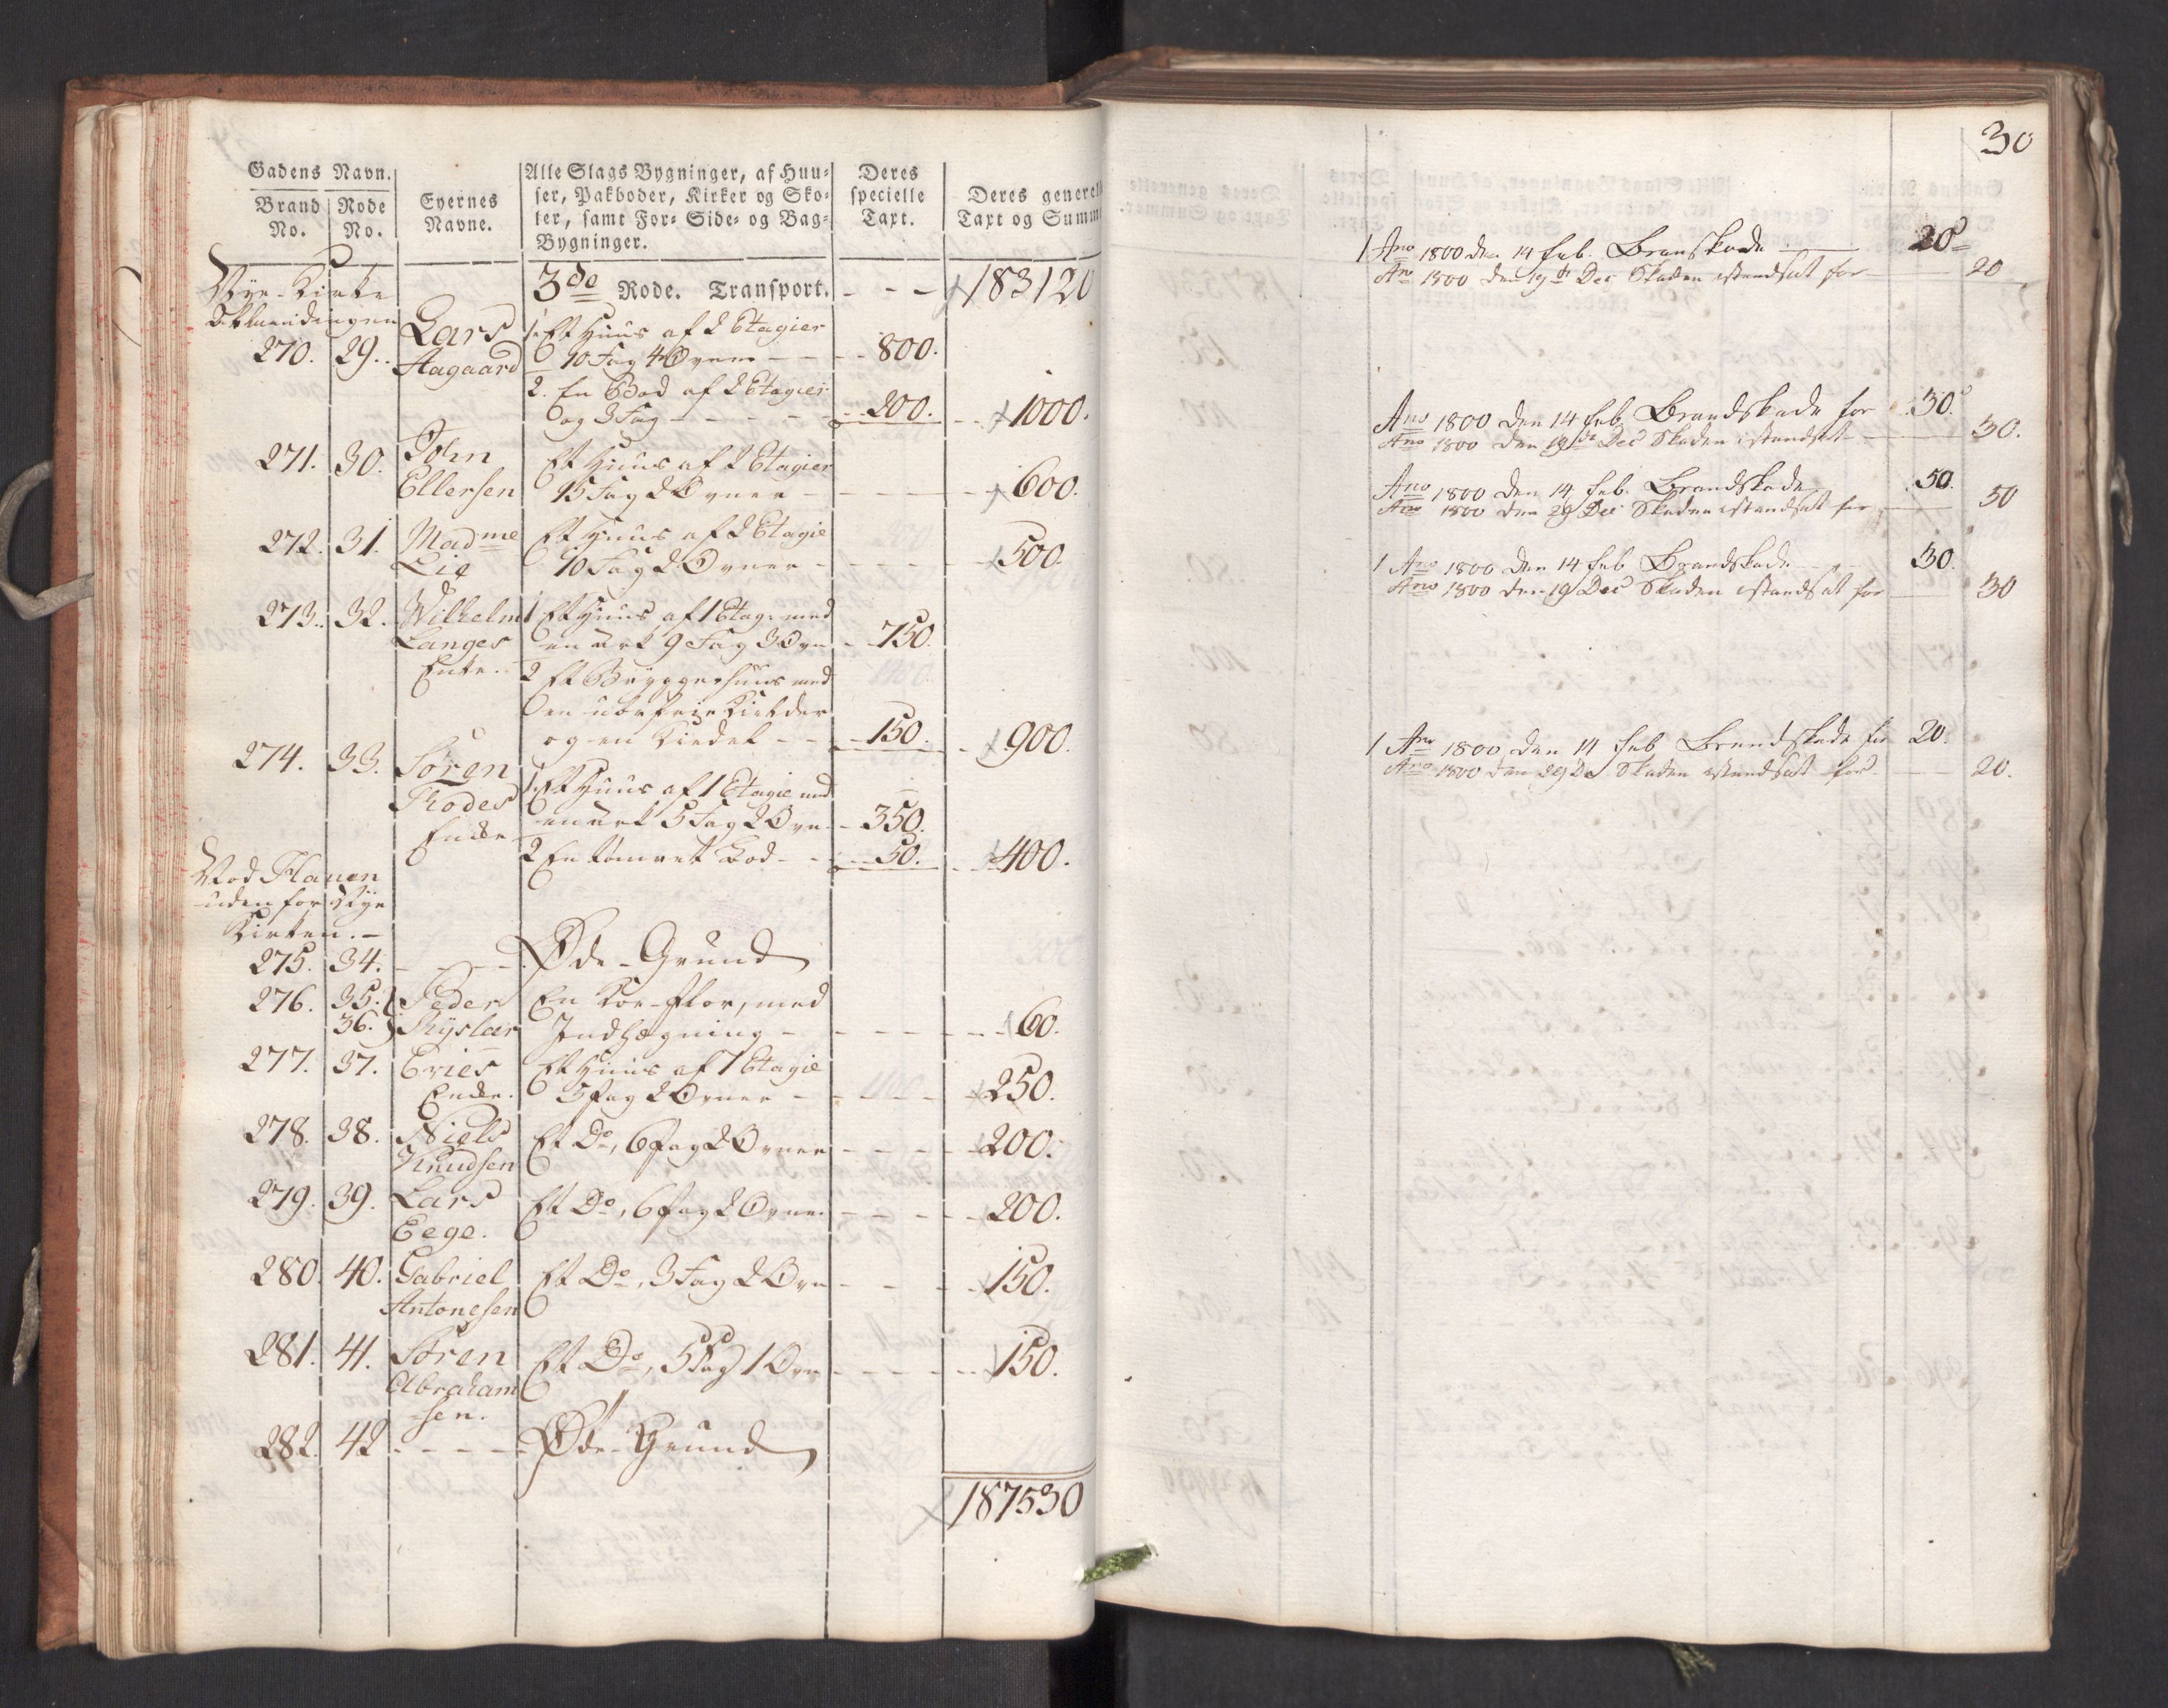 Gadens Navn.
Brand No. Rode No.
Eyernes Navne.
Alle Slags Bygninger, af Huu-
ser, Pakboder, Kirker og Sko-
ler, samt For- Side- og Bag-
Bygninger.
Deres specielle Taxt.
Deres generelle
Taxt og Summe
Nye-Kirke
3de Rode. Transport. - - - 183120
270. 29. Lars Aagaard
1. Et Huus af 2 Etagier
10 Fag 4 Ovne - - 800.
2. En Bod af 2 Etagier
og 3 Fag - - - - 200. - - 1000.
271. 30. John Ellersen
Et Huus af 2 Etagier
15 Fag 2 Ovner - - - 600.
272. 31. Madme Lie
Et Huus af 2 Etagie
10 Fag 2 Ovner - - - 500.
273. 32. Wilhelm Langes Enke.
1 Et Huus af 1 Etage med
en Ark 9 Fag 3 Ovn - 750.
2 Et Bryggerhuus med
en Kielder
og en Kiedel - - 150. - 900.
274. 33. Søren Rodes Enke
1. Et Huus af 1 Etagie med
en Ark 5 Fag 2 Ovn - 350.
2 En tømret Bod - - 50. - - 400.
Ved Hauen
uden for Nye
Kirken. -
275. 34. - - - - Øde-Grund
276. 35. 36. Peder
En Koe-Flor, med
Indhægning - - - - 60.
277. 37. Cries Encke.
Et Huus af 1 Etagie
5 Fag 2 Ovner - - - 250.
278. 38. Niels Knudsen
Et Do, 6 Fag 2 Ovner - - - 200.
279. 39. Lars Eege.
Et Do, 6 Fag 2 Ovne - - - 200.
280. 40. Gabriel Antonesen
Et Do, 3 Fag 2 Ovn - - - 150.
281. 41. Søren Abraham
-sen.
Et Do, 5 Fag 1 Ovn - - - 150.
282. 42 - - - - Øde-Grund
187530
30
1 Ano 1800 den 14 Feb. Branskade 20
Ano 1800 den 19de Dec Skaden istandsat for 20
Ano 1800 den 14 Feb. Brandskade for 30.
Ano 1800 den 19de Dec Skaden istandsat 30.
Ano 1800 den 14 Feb. Brandskade 50.
Ano 1800 den 29 Dec Skaden istandsat for 50
1 Ano 1800 den 14 Feb Brandskade 30.
Ano 1800 den 19 Dec Skaden istandsat for 30
1 Ano 1800 den 14 Feb Brandskade for 20.
Ano 1800 den 29 De Skaden istandsat for 20.